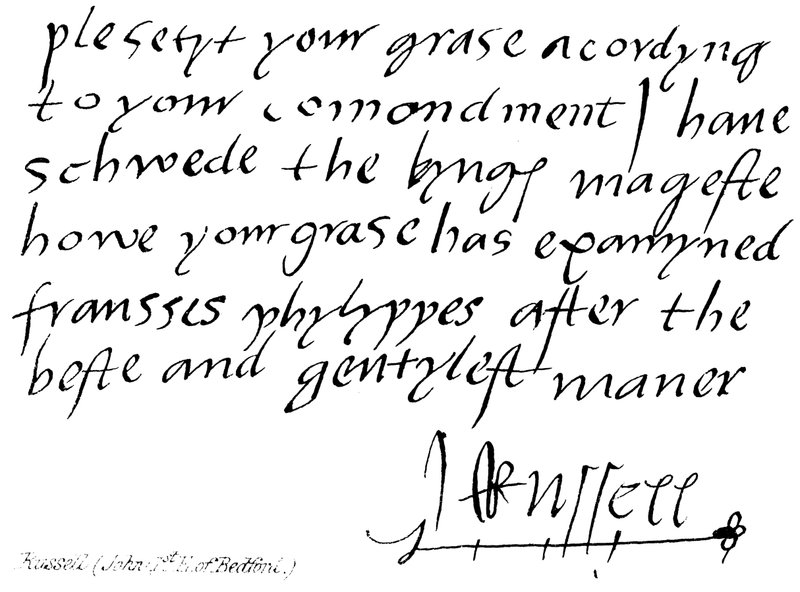 plesetyt your grase acordyng
to your comondment I haue
schwede the kynges mageste
howe your grase has examyned
fransses phylyppes after the
beste and gentylest maner
J Russell
Russell (John 1st E. of Bedford.)